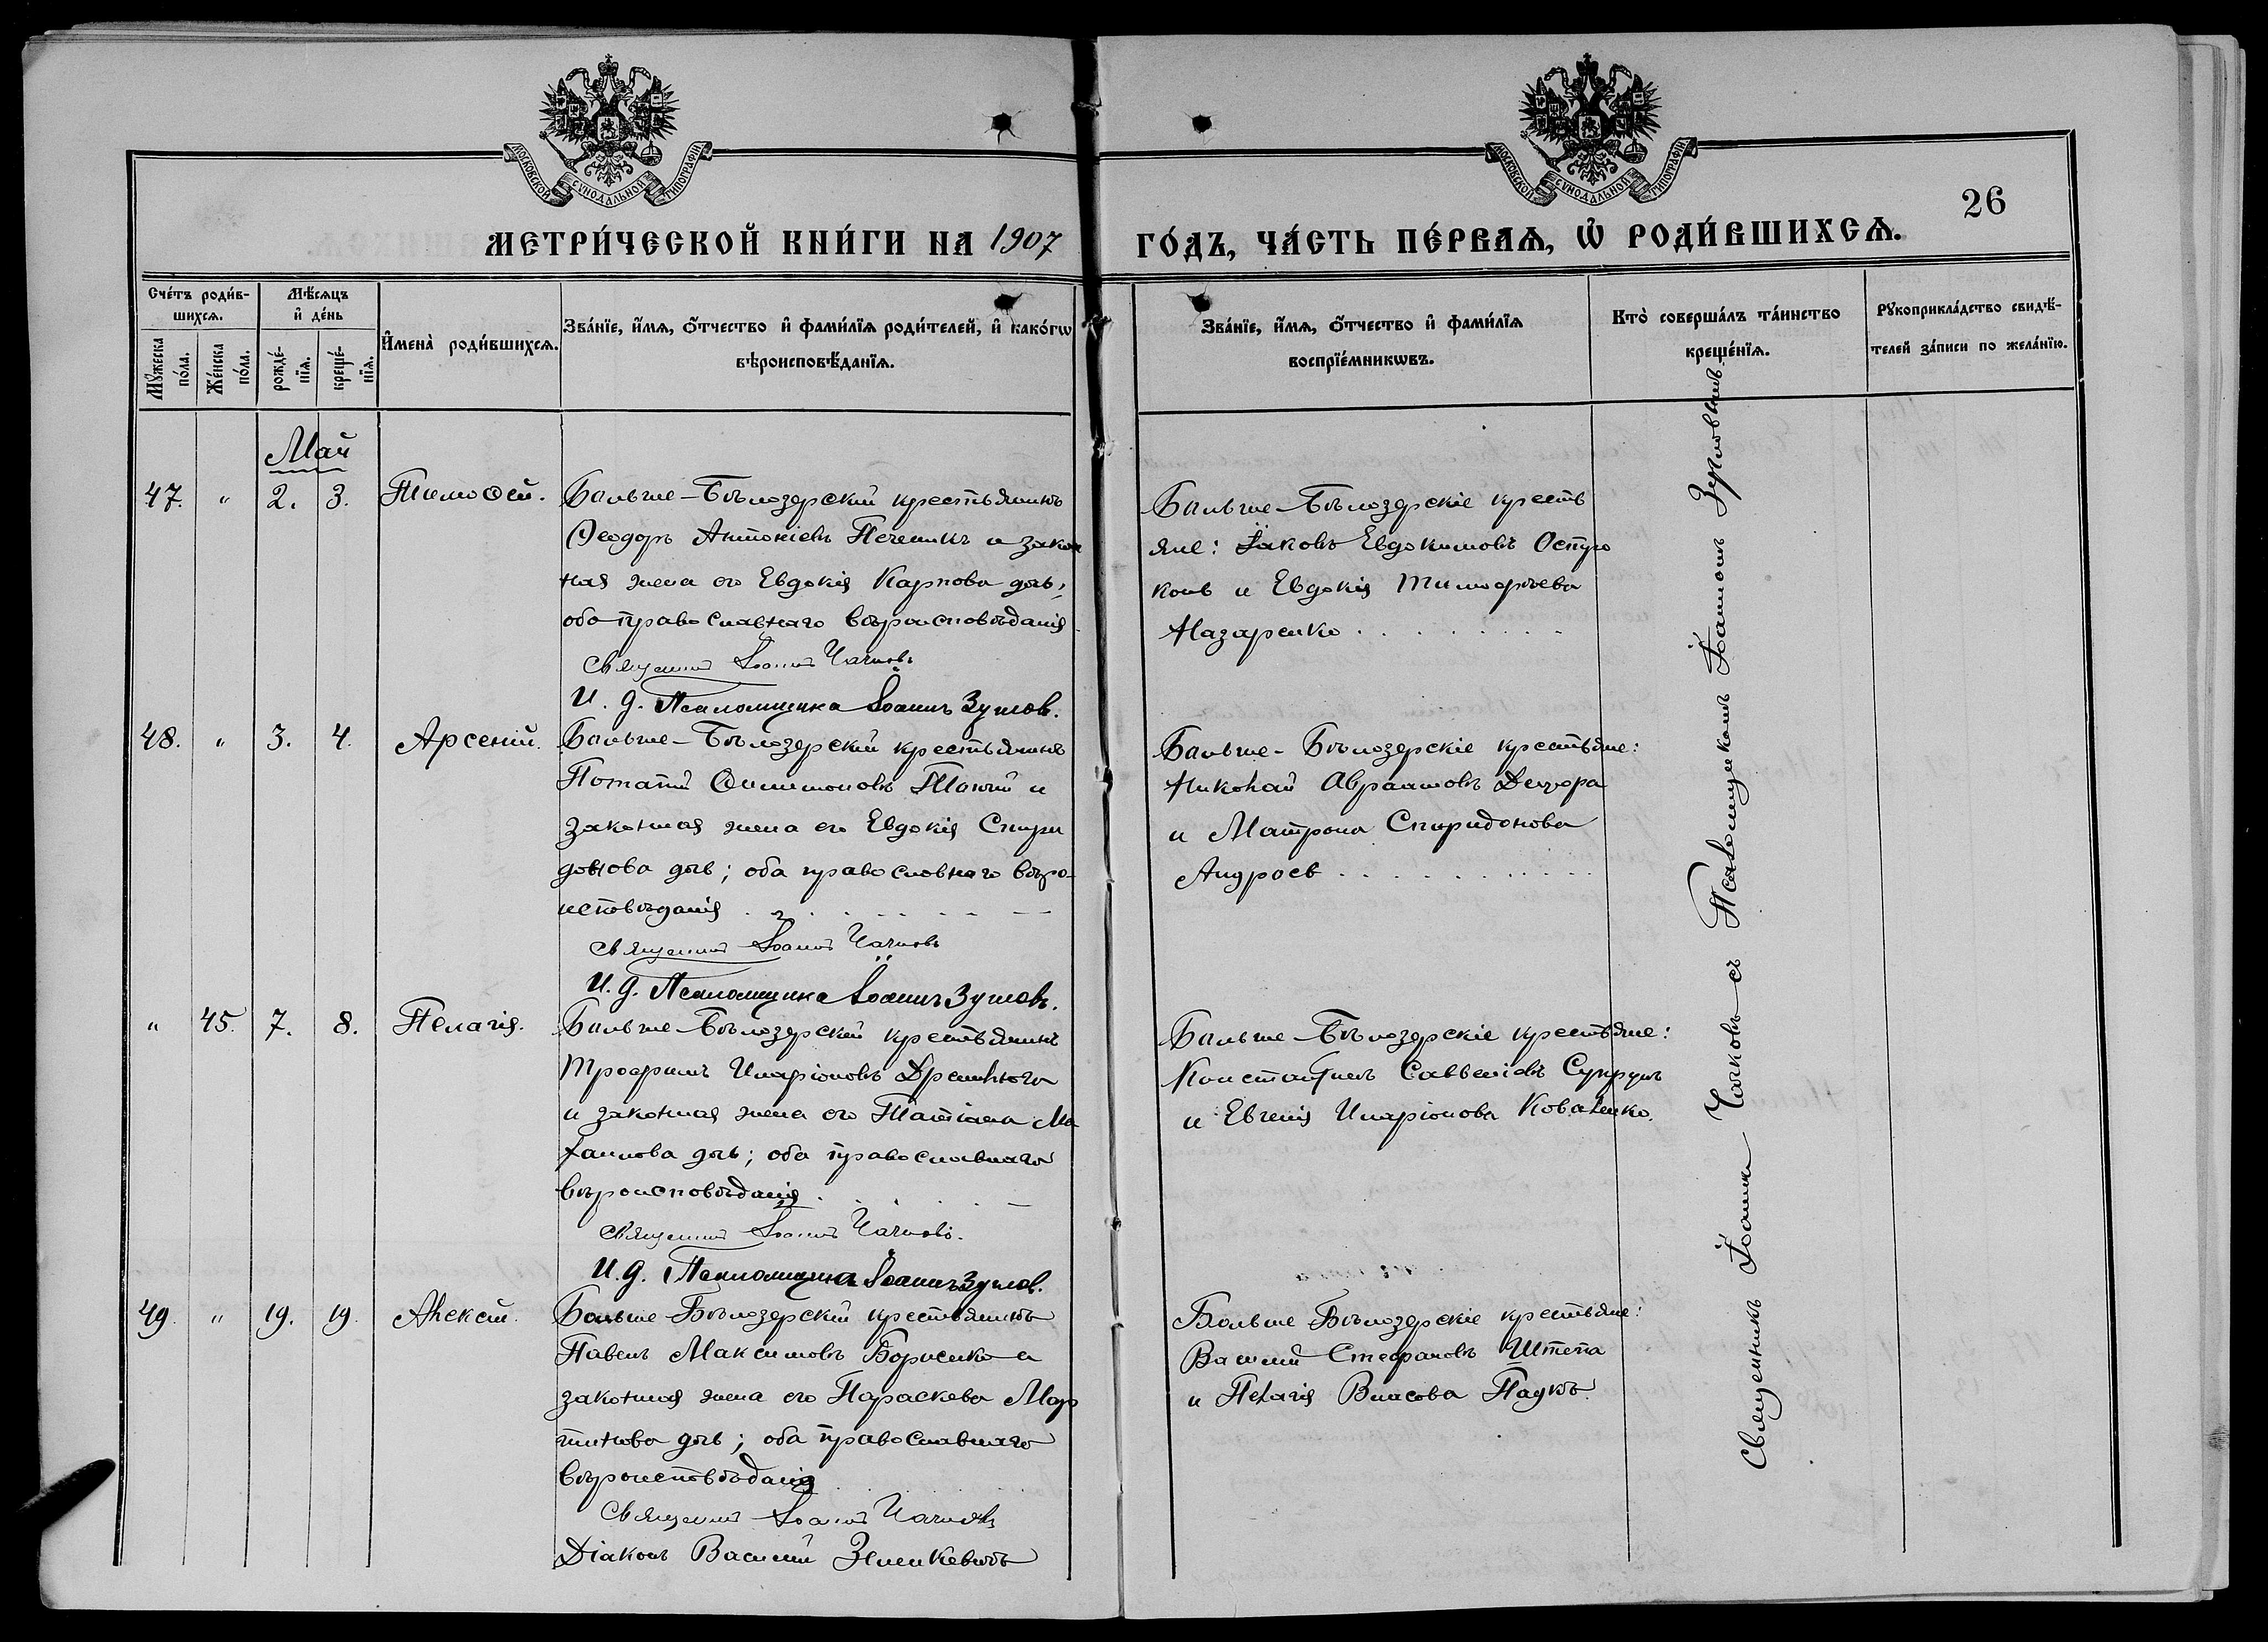 МОСКОВСКОЙ СУНОДАЛЬНОЙ ТИПОГРАФІИ
МОСКОВСКОЙ СУНОДАЛЬНОЙ ТИПОГРАФІИ
26
МЕТРИ́ЧЕСКОЙ КНИ́ГИ НА 1907 ГО́ДЪ, ЧА́СТЬ ПЕ́РВАѦ, Ѡ РОДИ́ВШИХСѦ.
Сче́тъ роди́в-
шихсѧ.
Мꙋ́жеска по́ла.
Же́нска по́ла.
Мѣ́сѧцъ
и҆ де́нь
рожде́-
нїѧ.
креще́-
нїѧ.
И҆мена̀ роди́вшихсѧ.
Зва́нїе, и҆́мѧ, ѻ҆́тчество и҆ фами́лїѧ роди́телей, и҆ како́гѡ
вѣроисповѣ́данїѧ.
Зва́нїе, и҆́мѧ, ѻ҆́тчество и҆ фами́лїѧ
воспрїе́мникѡвъ.
Кто̀ соверша́лъ та́инство
креще́нїѧ.
Рꙋкоприкла́дство свидѣ́-
телей за́писи по жела́нїю.
Май
47. " 2. 3. Тимоѳей.
Больше-Бѣлозерскій крестьянинъ
Ѳеодоръ Антоніевъ Печеникъ и закон
ная жена его Евдокія Карпова дочь;
оба православнаго вѣроисповѣданія
Священникъ Іоаннъ Чачковъ
И. д. Псаломщика Іоаннъ Зуповъ.
Больше-Бѣлозерскіе кресть
яне: Іаковъ Евдокимовъ
и Евдокія Тимофѣева
Назаренко
48. " 3. 4. Арсеній.
Больше-Бѣлозерскій крестьянинъ
Потапій и
законная жена его Евдокія Спири
донова дочь; оба православнаго вѣро-
исповѣданія
Священникъ Іоаннъ Чачковъ
И. д. Псаломщика Іоаннъ Зуповъ.
Больше-Бѣлозерскіе крестьяне:
Николай Авраамовъ
и Матрона Спиридонова
" 45. 7. 8. Пелагія.
Больше-Бѣлозерскій крестьянинъ
Трофимъ Иларіоновъ
и законная жена его Татіана
дочь; оба православнаго
вѣроисповѣданія
Священникъ Іоаннъ Чачковъ.
И. д. Псаломщика Іоаннъ Зуповъ.
Больше-Бѣлозерскіе крестьяне:
Константинъ Саввеніевъ Супрунъ
и Евгенія Иларіонова Коваленко.
49. " 19. 19. Алексій.
Больше-Бѣлозерскій крестьянинъ
Павелъ Максимовъ Борисенко и
законная жена его Параскева Мар
тинова дочь; оба православнаго
вѣроисповѣданія
Священникъ Іоаннъ Чачковъ
Діаконъ Василій Зеленкевичъ
Больше-Бѣлозерскіе крестьяне:
Василій Стефановъ Штепа
и Пелагія Власова Паукъ.
Священникъ Іоаннъ Чачковъ съ Псаломщикомъ Іоанномъ Зуповымъ.